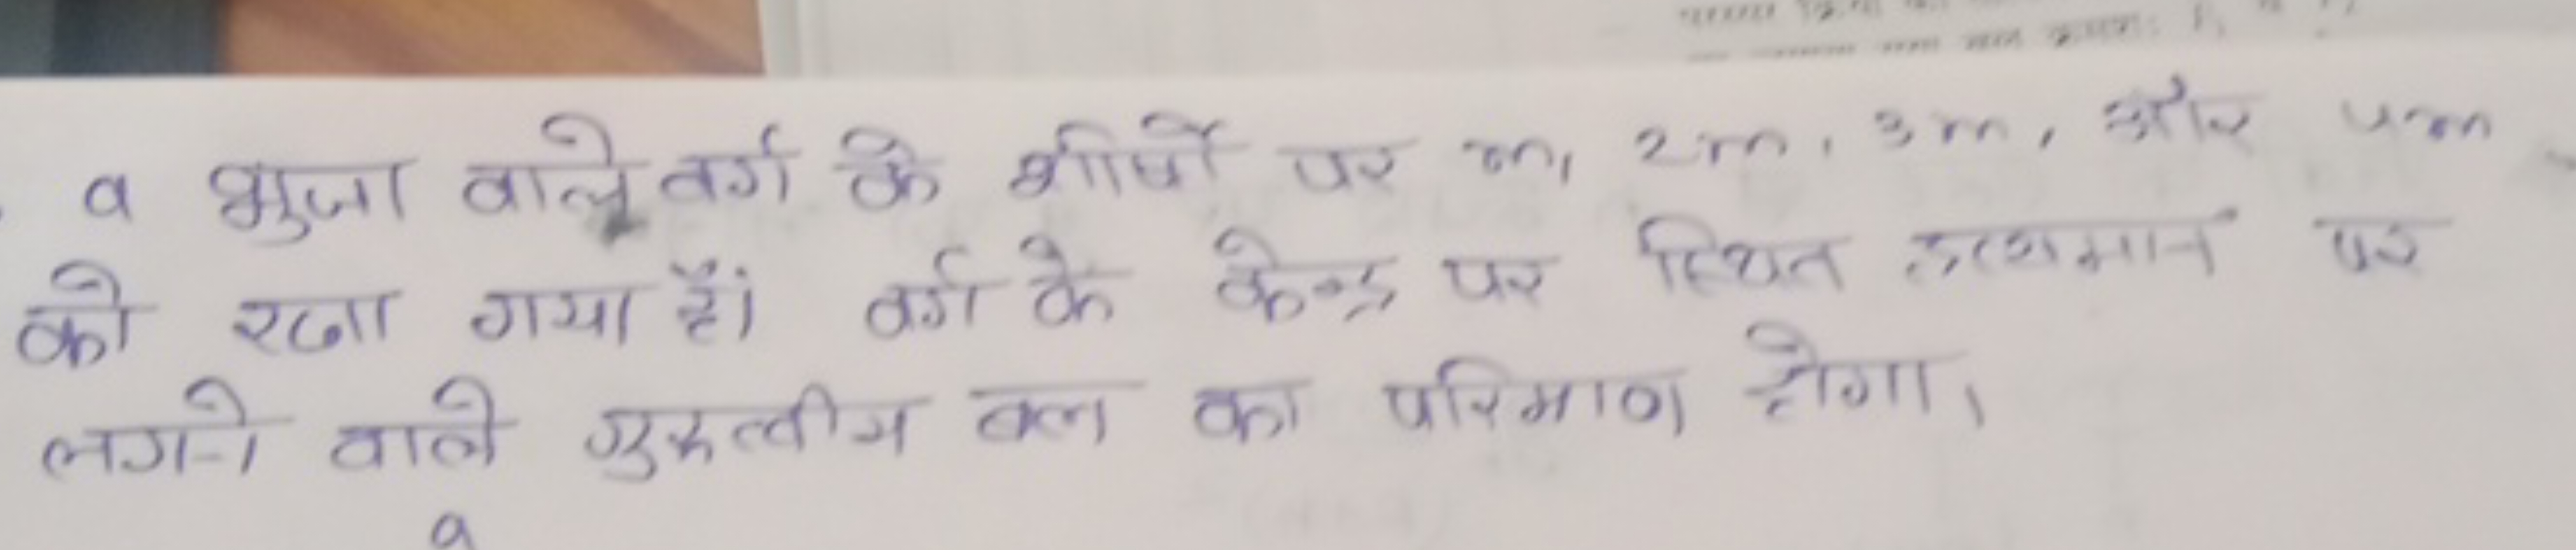 a भुजा वाले वर्ग के शीर्षों पर m, 2m, 3m, और 4m
को रखा गया हैं। वर्ग के केन्द्र पर स्थित द्रव्यमान पर
लगने वाले गुरुत्वीय बल का परिमाण होगा।
a